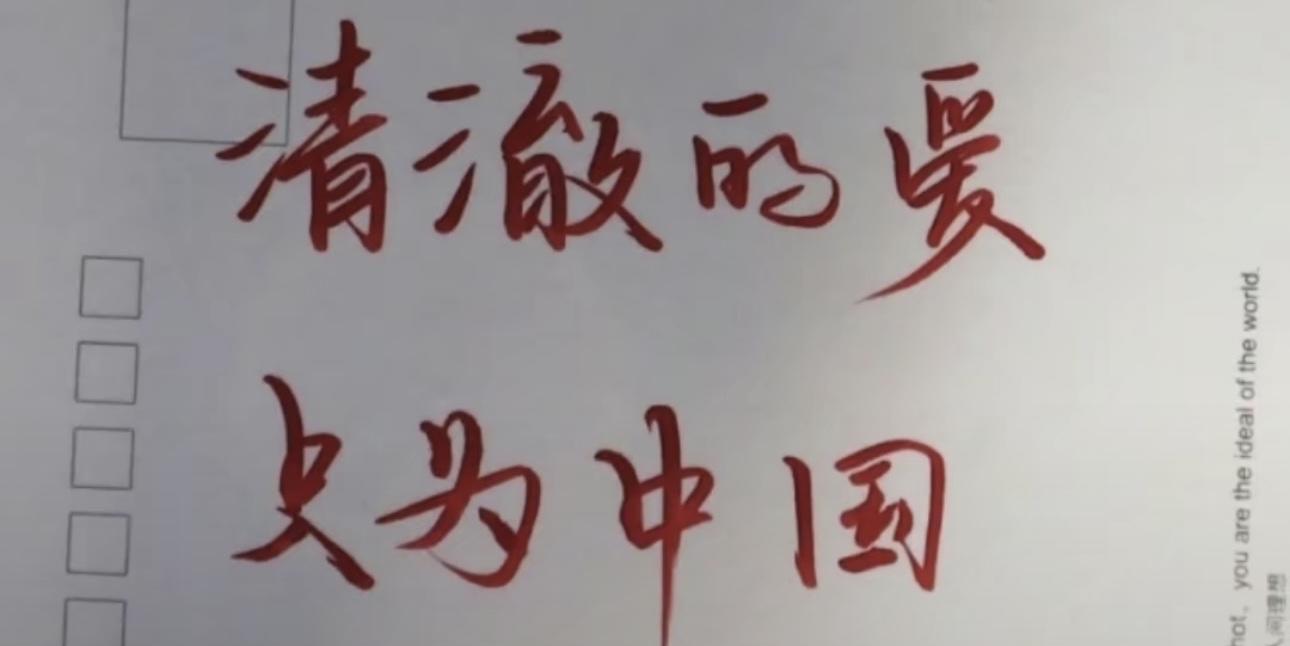 清澈的爱
只为中国
not, you are the ideal of the world.
人间理想